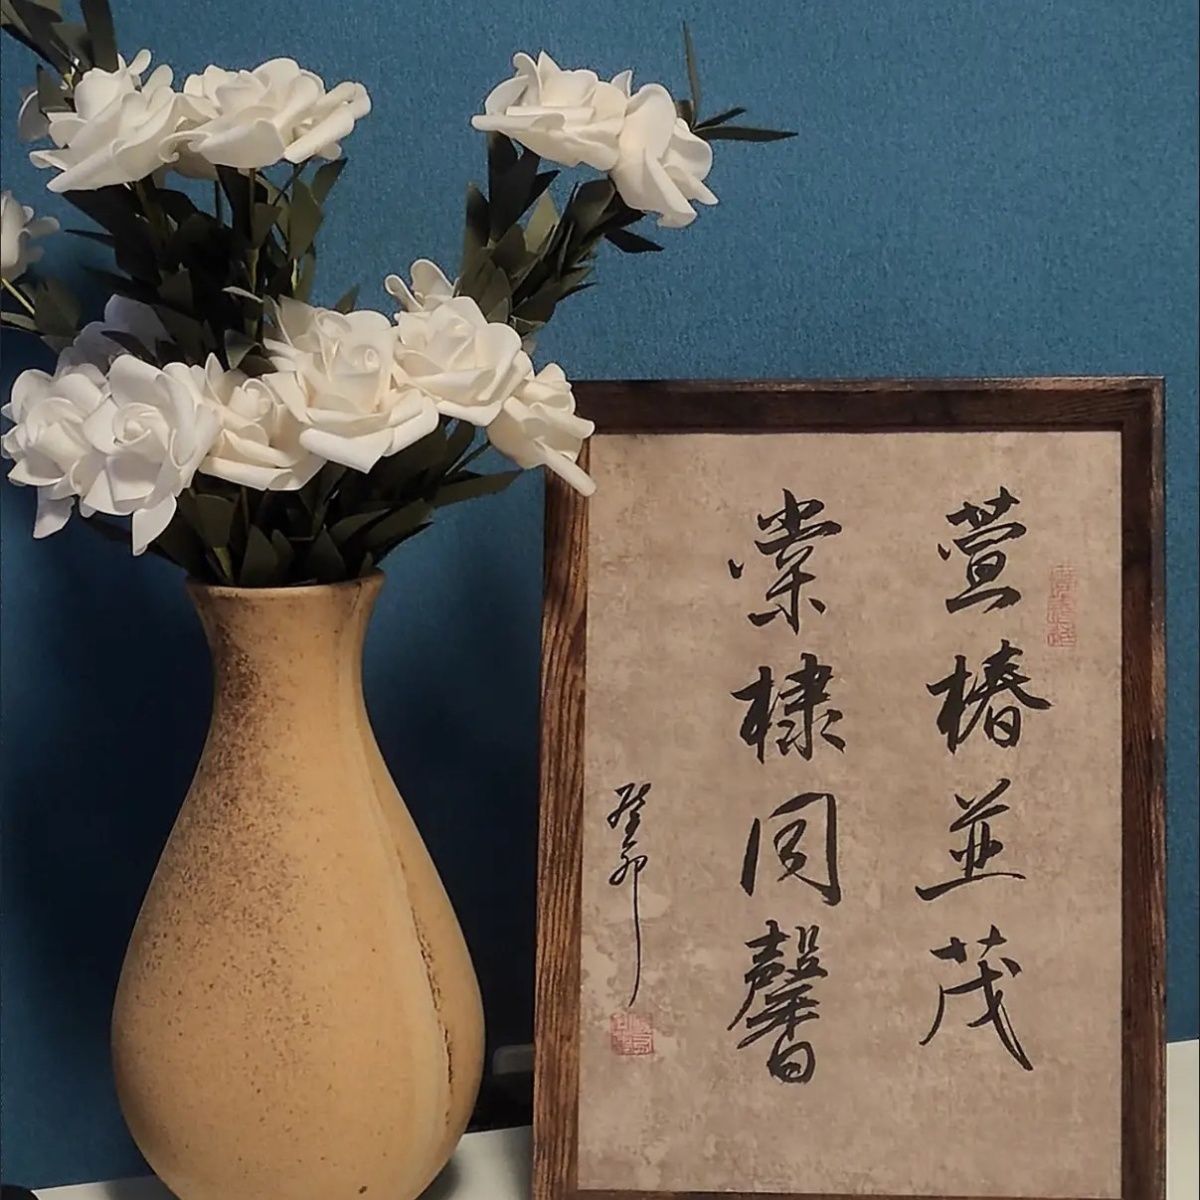 萱椿並茂
棠棣同馨
癸卯